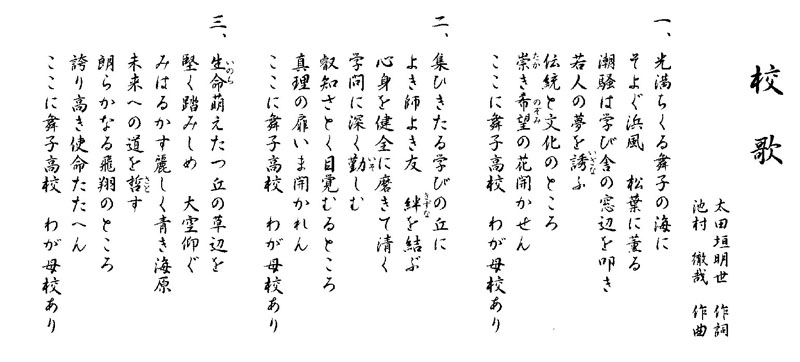 校歌
太田垣明世 作詞
池村 徹哉 作曲
一、光満ちくる舞子の海に
そよぐ浜風 松葉に薫る
潮騒は学び舎の窓辺を叩き
若人の夢を誘ふ
伝統と文化のところ
崇き希望の花開かせん
ここに舞子高校 わが母校あり
二、集ひきたる学びの丘に
よき師よき友 絆を結ぶ
心身を健全に磨きて清く
学問に深く勤しむ
叡知さとく目覚むるところ
真理の扉いま開かれん
ここに舞子高校 わが母校あり
三、生命萌えたつ丘の草辺を
堅く踏みしめ 大空仰ぐ
みはるかす麗しく青き海原
未来への道を哲す
朗らかなる飛翔のところ
誇り高き使命たたへん
ここに舞子高校 わが母校あり